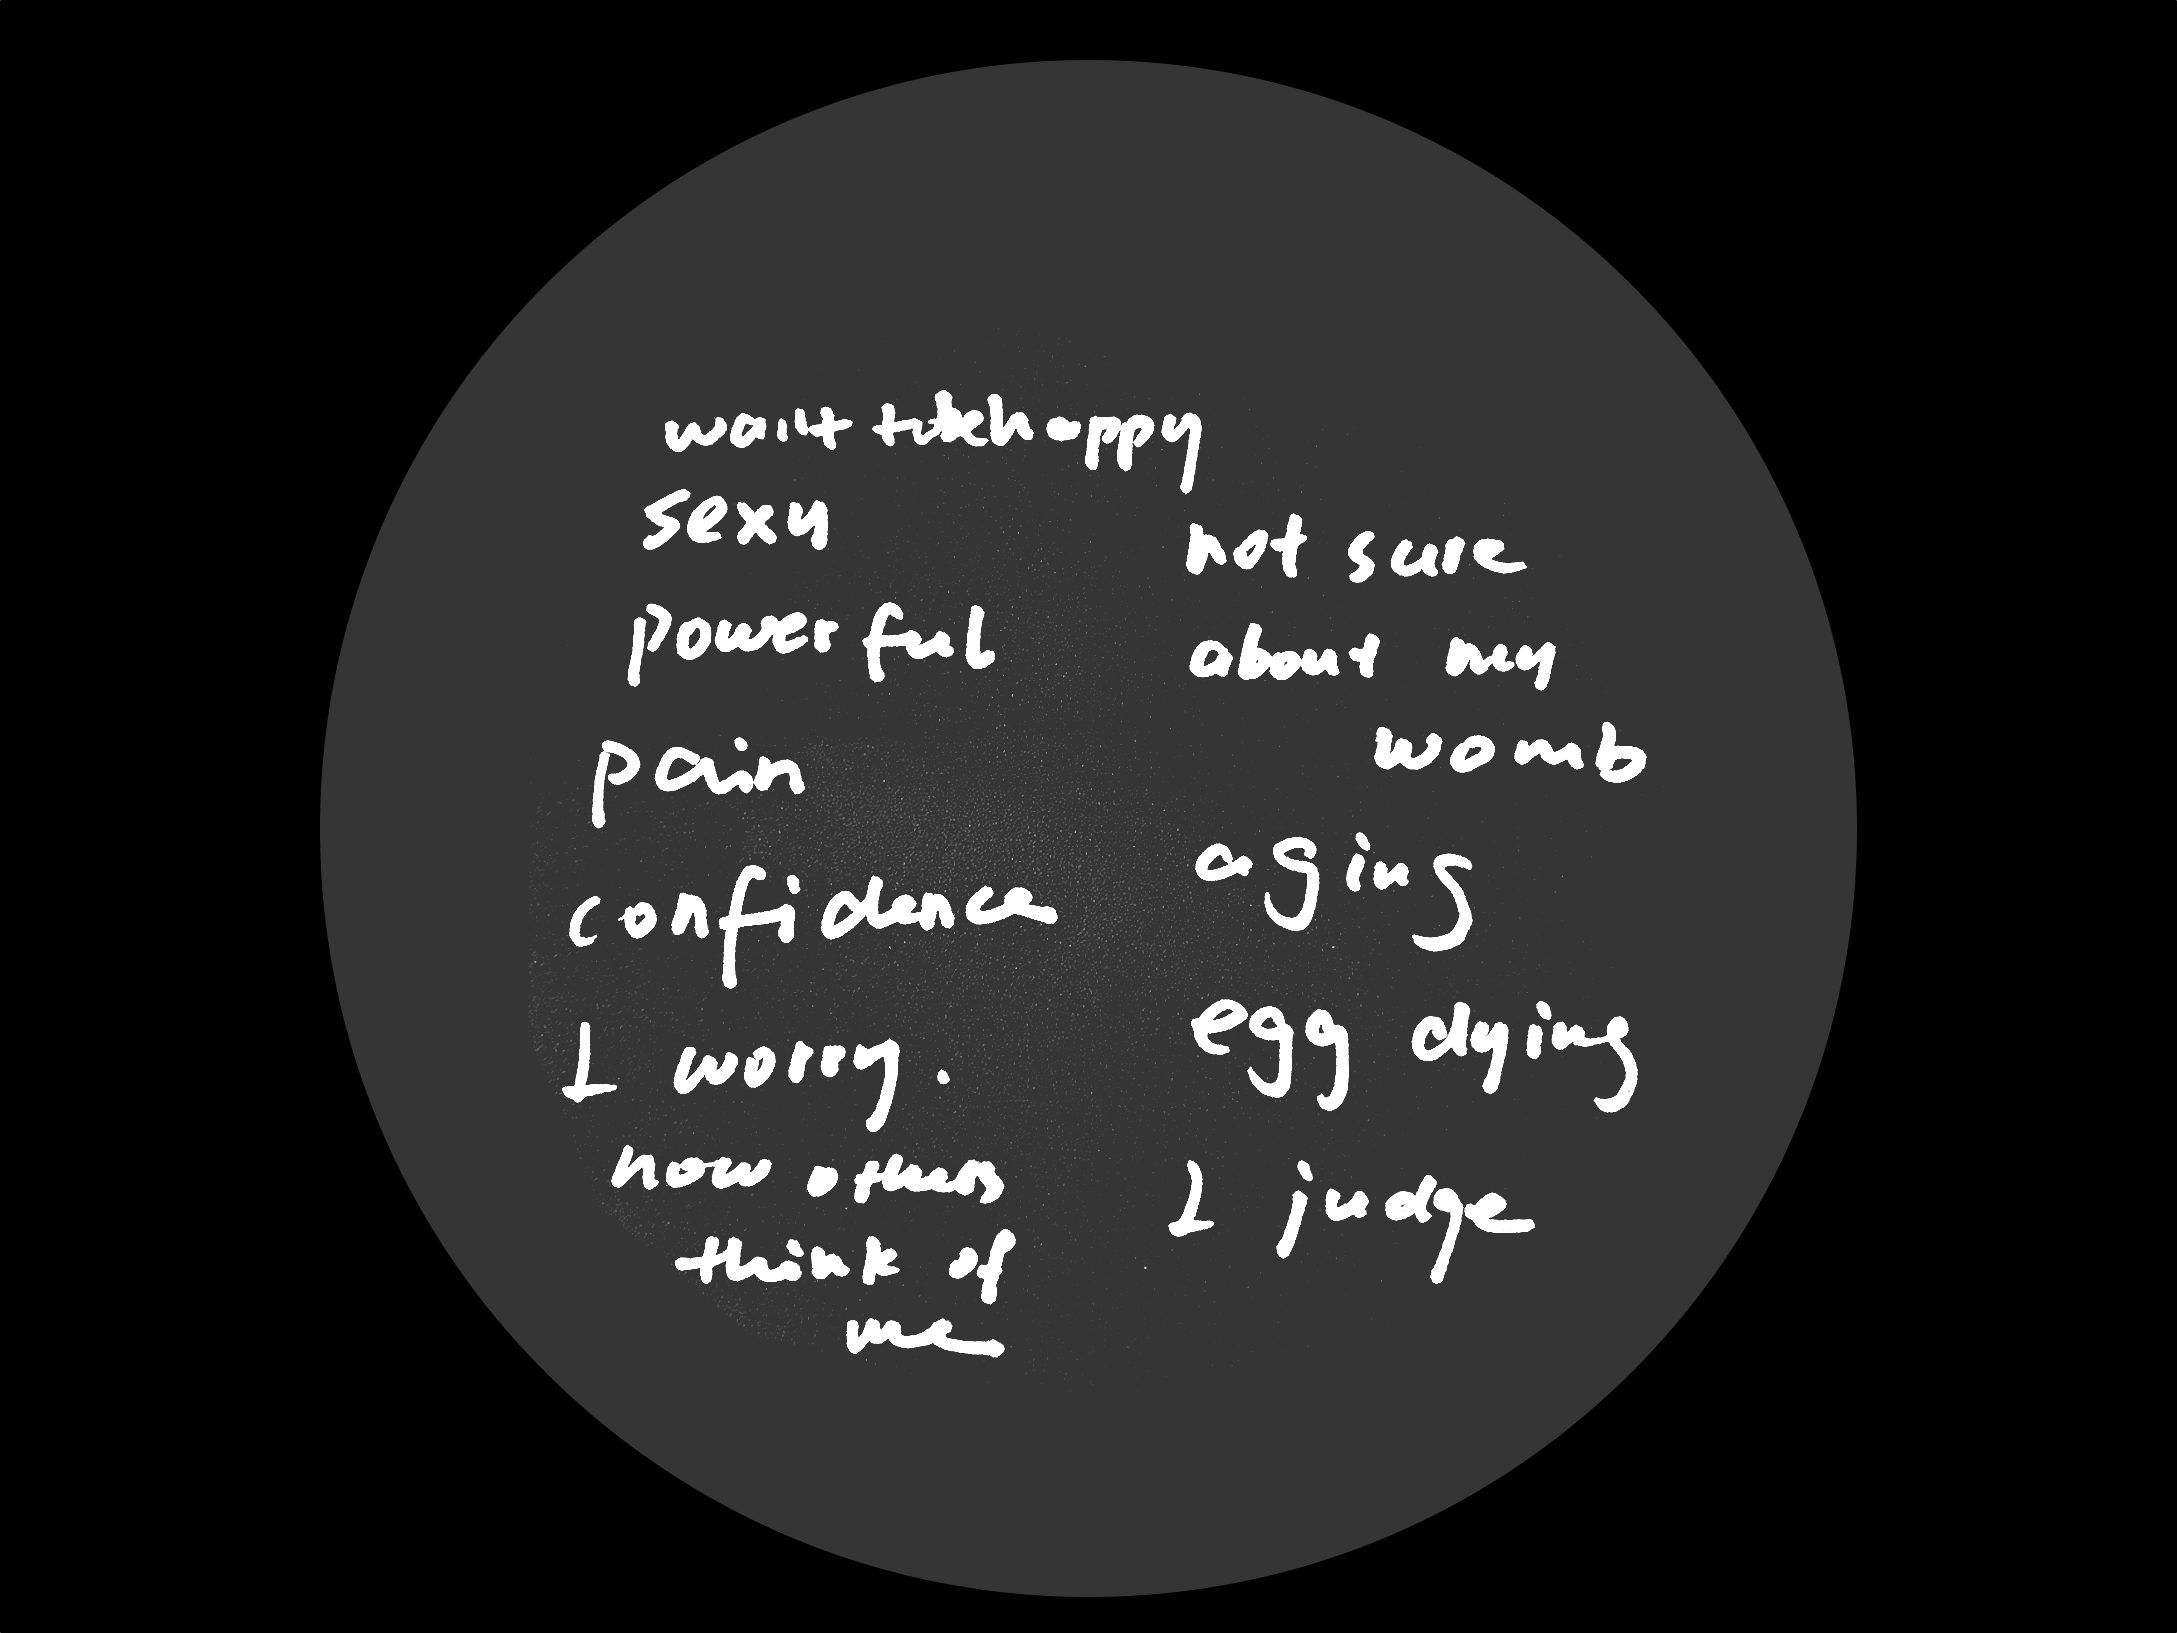 want to be happy
sexy
powerful
pain
confidence
I worry.
how others
think of
me
not sure
about my
womb
aging
egg dying
I judge